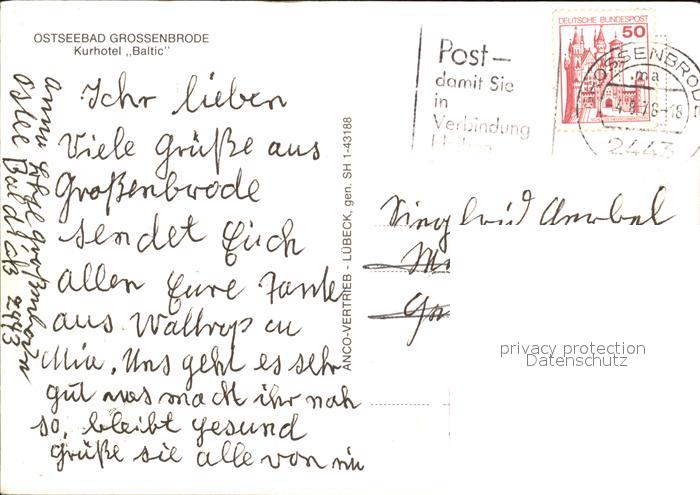 OSTSEEBAD GROSSENBRODE
Kurhotel „Baltic"
Ihr lieben
Viele Grüße aus
Großenbrode
sendet Euch
allen Eure Tante
aus Waltrop
Uns geht es sehr
gut was macht ihr noh
so, bleibt gesund
grüße sie alle von
Ostee Bad
2443
ANCO-VERTRIEB - LÜBECK, gen. SH 1-43188
Post-
damit Sie
in
Verbindung
DEUTSCHE BUNDESPOST
50
GROSSENBRODE
-4.8.78-18
2443
Siegfried
privacy protection
Datenschutz